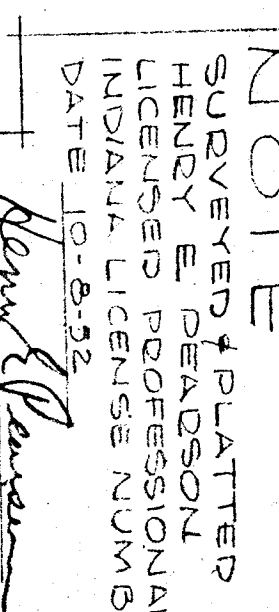 NOTE
SURVEYED & PLATTED
HENRY E PEARSON
LICENSED PROFESSIONAL
INDIANA LICENSE NUMB
DATE 10-8-52
Henry E Pearson